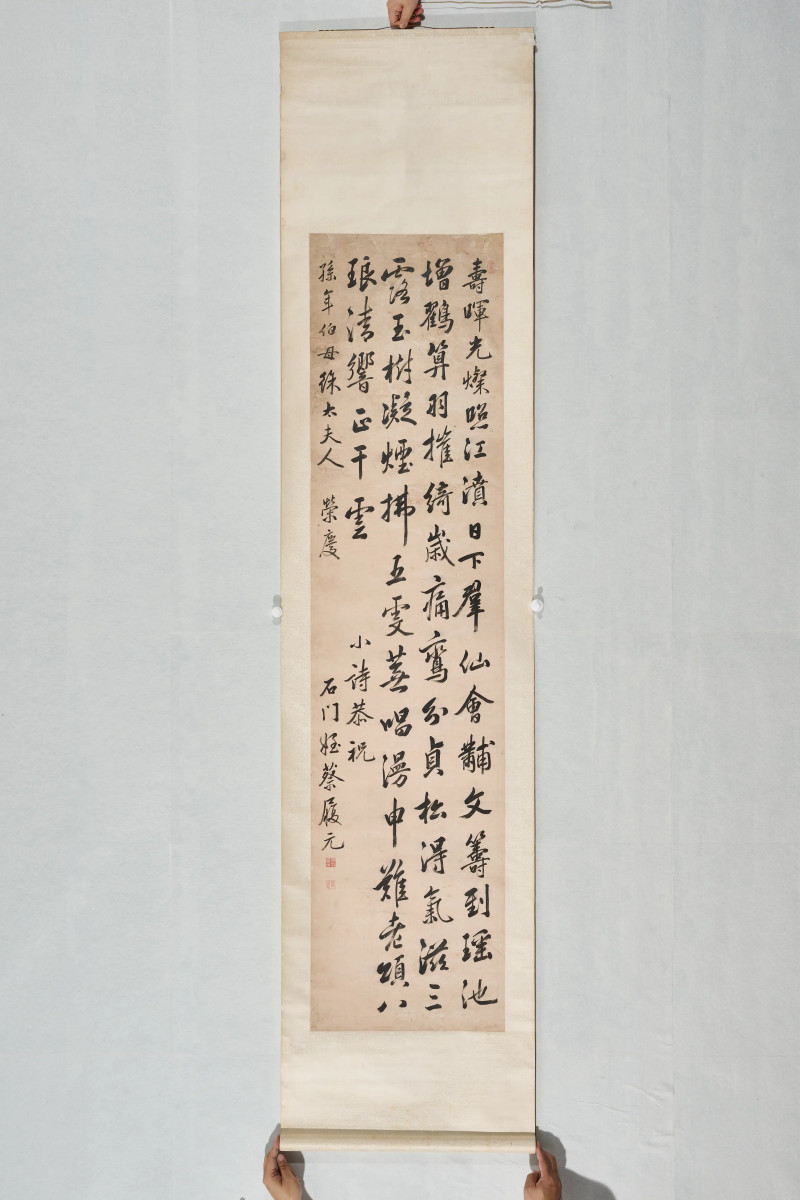 壽暉光燦照江濆日下羣仙會黼文籌到瑤池
增鶴算羽摧綺歲痛鸞分貞松得氣滋三
露玉樹凝煙拂五雯蕪唱漫申難老頌八
琅清響正干雲 小詩恭祝
孫年伯母太夫人 榮慶 石门姪蔡履元